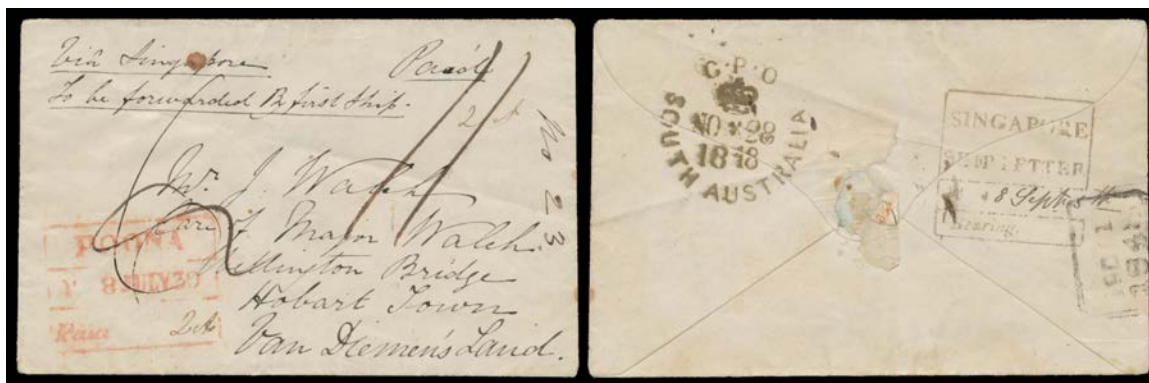 Via Singapore
Paid
To be forwarded P first Ship.
No 23
Mr. J. Walch
Care of Major Walch
Wellington Bridge
Hobart Town
Van Diemen's Land.
POONA
Paid
G·P·O
NO 28
1848
SOUTH AUSTRALIA
SINGAPORE
SHIP LETTER
8 Septr
Bearing.